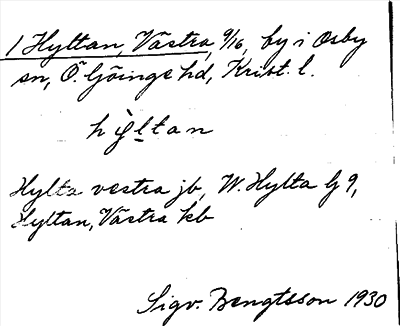 1 Hyltan, Västra, 9/16, by i Osby
sn, Ö. Göinge hd, Krist. l.
hỳltan
Hylta vestra jb, W. Hylta G 9,
Hyltan, Västra kb
Sigv. Bengtsson 1930